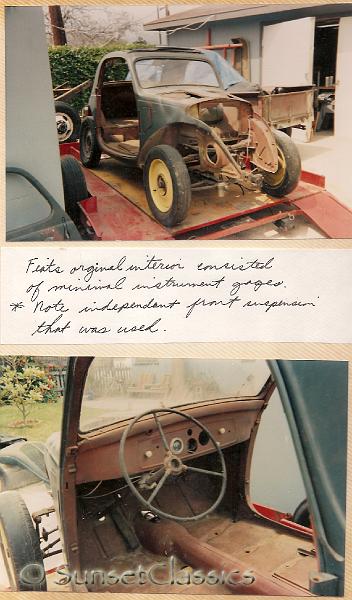 Fiats orginal interior consisted
of minimal instrument gages.
* Note independant front suspension
that was used.
© SunsetClassics